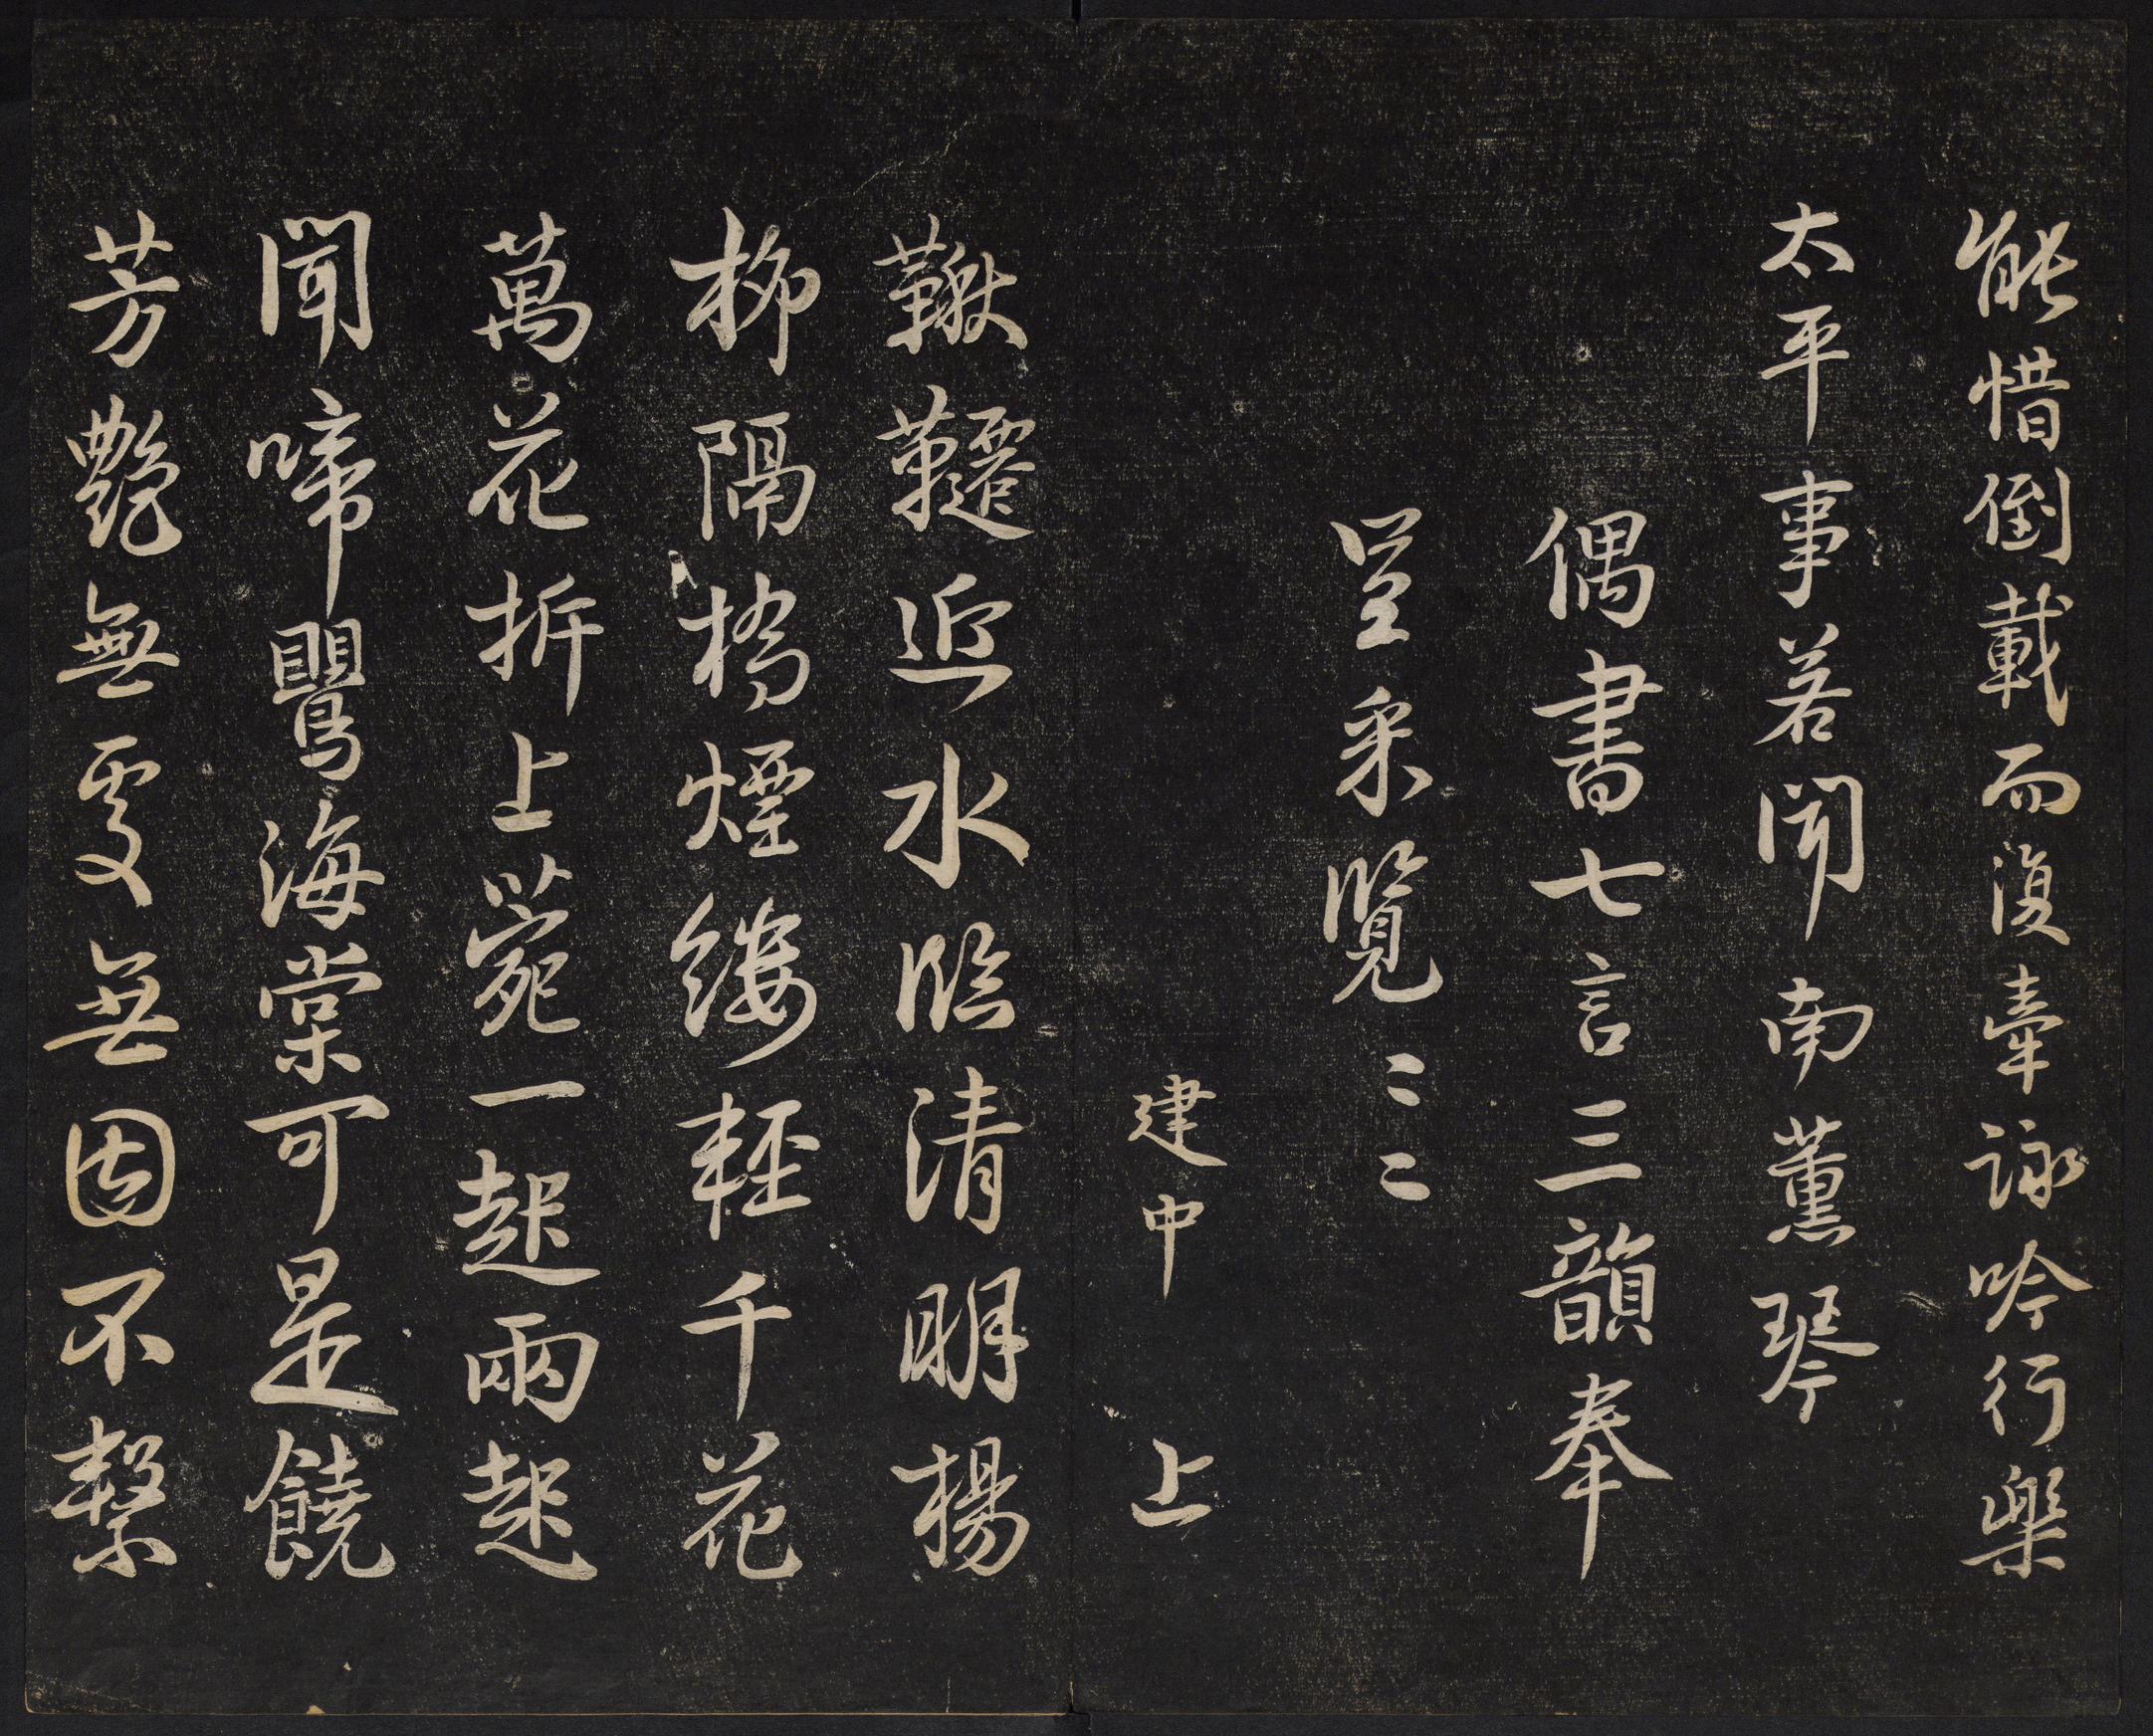 能惜倒載而復牽詠吟行樂
太平事若聞南薰琴
偶書七言三韻奉
呈采覽〻〻
建中 上
鞦韆近水臨清明楊
柳隔橋煙縷輕千花
萬花折上菀一趂兩趂
聞啼鸎海棠可是饒
芳艷無處無因不繫